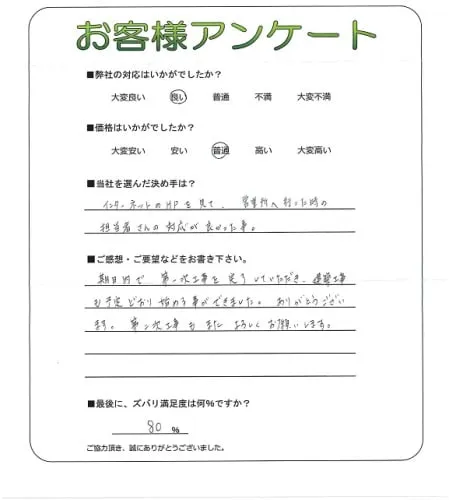 お客様アンケート
■弊社の対応はいかがでしたか？
大変良い 良い 普通 不満 大変不満
■価格はいかがでしたか？
大変安い 安い 普通 高い 大変高い
■当社を選んだ決め手は？
インターネットのHPを見て、営業所へ行った時の
担当者さんの対応が良かった事。
■ご感想・ご要望などをお書き下さい。
期日内で、第一次工事を完了していただき、建築工事
も予定どおり始める事ができました。ありがとうござい
ます。第二次工事もまたよろしくお願いします。
■最後に、ズバリ満足度は何%ですか？
80 %
ご協力頂き、誠にありがとうございました。